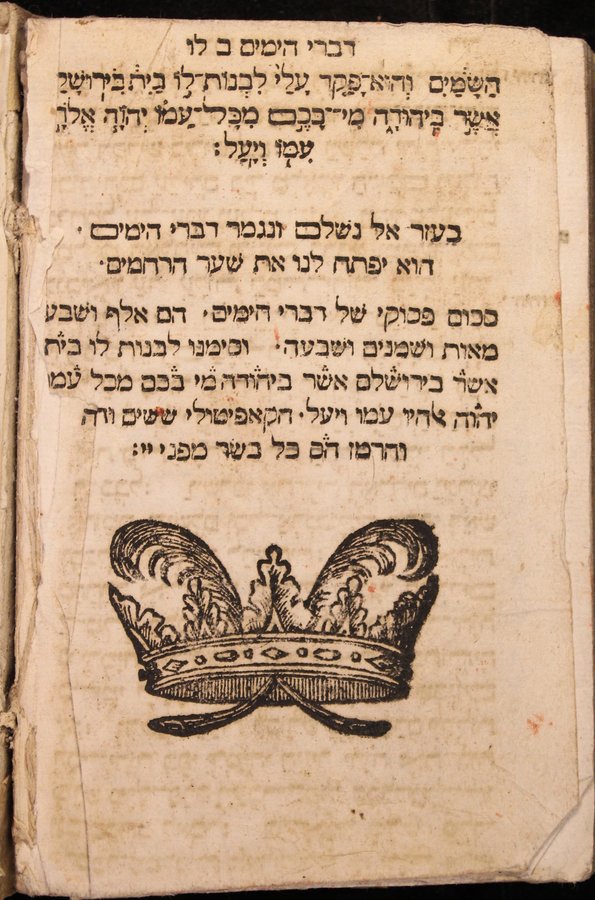 דברי הימים ב לו
הַשָּׁמַיִם וְהוּא־פָקַד עָלַי לִבְנוֹת־לוֹ בַיִת בִּירוּשָׁלַ
אֲשֶׁר בִּיהוּדָה מִי־בָכֶם מִכָּל־עַמּוֹ יְהוָה אֱלֹהָ
עִמּוֹ וְיָעַל׃
בעזר אל נשלם ונגמר דברי הימים ·
הוא יפתח לנו את שער הרחמים·
סכום פסוקי של דברי הימים· הם אלף ושבע
מאות ושמנים ושבעה· וסימנו לבנות לו בית
אשר בירושלם אשר ביהודה מי בכם מכל עמו
יהוה אהיו עמו ויעל· הקאפיטולי ששים וזה
והרמז הס כל בשר מפני יי׃